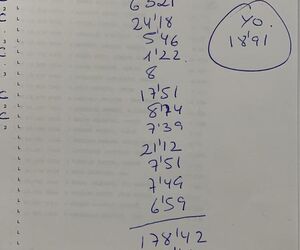 24'18
5'46
1'22
8
17'51
8'74
7'39
21'12
7'51
7'49
6'59
178'42
YO.
18'91